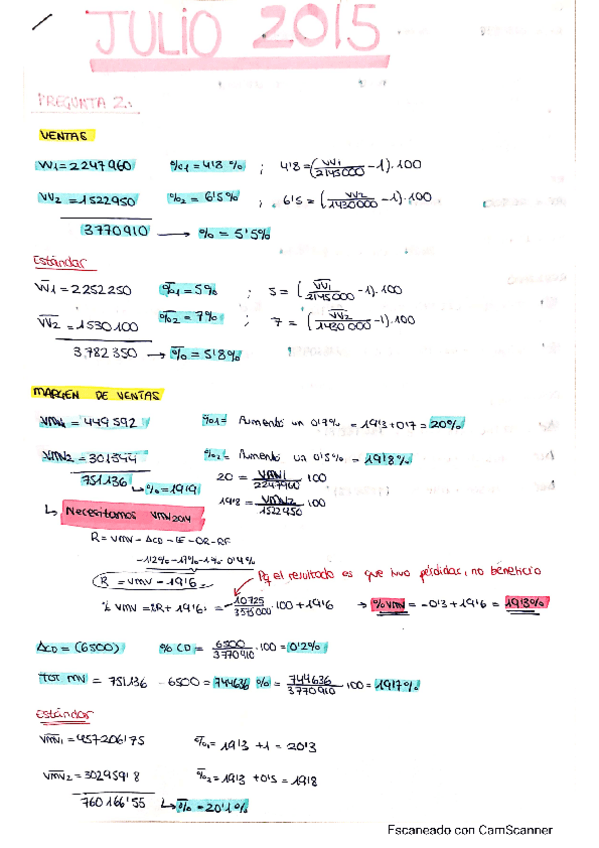 JULIO 2015
PREGUNTA 2:
VENTAS
VV1 = 2247960 %1 = 4'8 % ; 4'8 = (VV1/2145000 - 1).100
VV2 = 1522950 %2 = 6'5% ; 6'5 = (VV2/1430000 - 1).100
3770910 → % = 5'5%
Estándar
VV1 = 2252250 %1 = 5% ; 5 = (VV1/2145000 - 1).100
VV2 = 1530100 %2 = 7% ; 7 = (VV2/1430000 - 1).100
3.782 350 → % = 5'8%
MARGEN DE VENTAS
VMV1 = 449 592 %1 = Aumentó un 0'7% = 19'3 + 0'7 = 20%
VMV2 = 301544 %2 = Aumentó un 0'5% = 19'8%
751.136 ↳ % = 19'9 20 = VMV1/2247960 .100
19'8 = VMV2/1522450 .100
↳ Necesitamos VMV2014
R = VMV - ΔCD - CE - OR - RF
R = VMV - 19'6
Pq el resultado es que hubo pérdidas, no beneficio
% VMV = %R + 19'6 = - 10725/3575000 .100 + 19'6 → %VMV = -0'3 + 19'6 = 19'3%
ΔCD = (6500) % CD = 6500/3770910 .100 = 0'2%
Tot mv = 751.136 - 6500 = 744636 % = 744636/3770910 .100 = 19'7%
Estándar
VMV1 = 457206'75 %1 = 19'3 + 1 = 20'3
VMV2 = 302959'8 %2 = 19'3 + 0'5 = 19'8
760 166'55 ↳ % = 20'1%
Escaneado con CamScanner